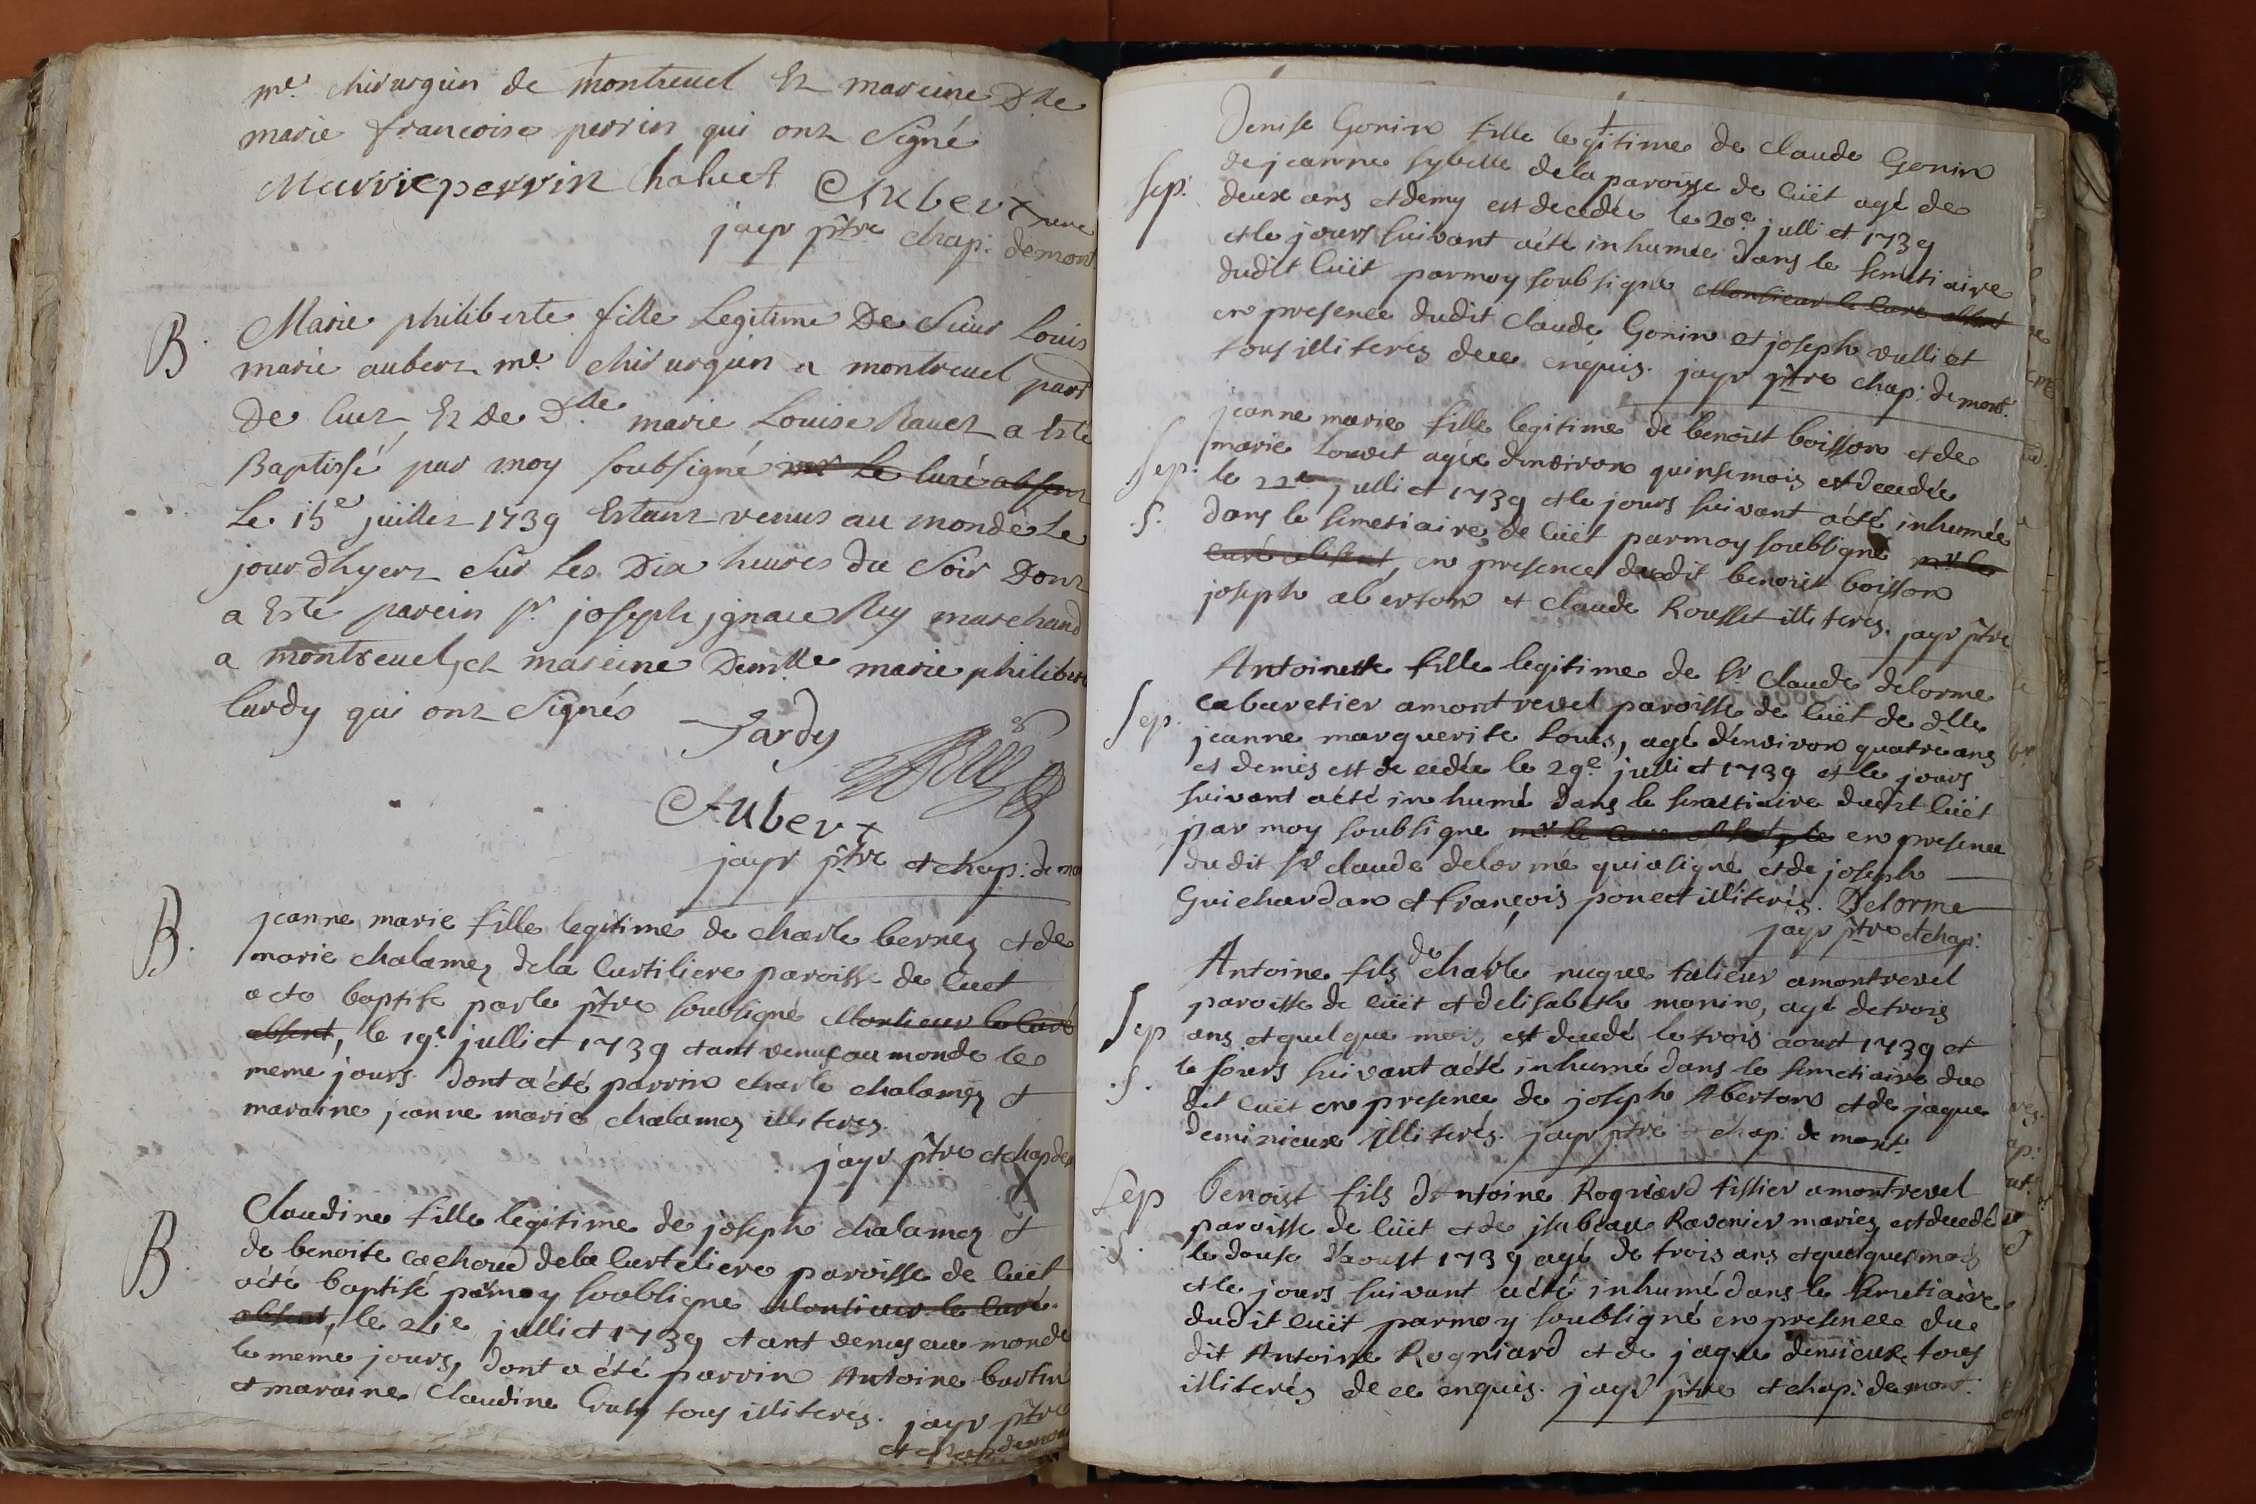 me. chirurgien de montreuel Et mareine Dlle
marie francoise perrin qui ont Signé
Marrie perrin chaluet Aubert
jayr ptre chap: demont
B. Marie philiberte fille Legitime De Sieur Louis
marie aubert me. chirurgien a montreuel par
De Cuet Et De Dlle marie Louise Rauet a Esté
Baptissé par moy soubsigné mr Le Curé absent
Le 15e juillet 1739 Estant venus au monde Le
jour d'hyert Sur Les Dix heures du Soir Dont
a Esté parein sr. joseph jgnace Rey marchand
a montreuel, et mareine Demlle marie philiberte
Curdy qui ont Signés
Jardy
Aubert
jayr ptre et chap: de mon
B. jeanne marie fille legitime de charle bernez et de
marie chalamez dela Curtiliere paroisse de Cuet
a ete baptise par le ptre soubsigné Monsieur le Curé
absent, le 19e julliet 1739 etant venus au monde le
meme jours. dont a été parrin charle chalamez et
maraine jeanne marie chalamez illiteres.
jayr ptre et chap de
B. Claudine fille legitime de joseph chalamez et
de benoite cachoud dela Curteliere paroisse de Cüet
a été baptisé par moy soubsigne Monsieur le Curé
absent, le 21e julliet 1739 etant venus au monde
le meme jours, dont a été parrin Antoine bartin
et maraine Claudine Cruty tous illiteres. jayr ptre
et chap demon
Denise Gonin fille legitime de Claude Gonin
de jeanne sybelle dela paroisse de Cüet agé de
Sep. deux ans et demy est decedée le 20e julliet 1739
et le jours suivant a été inhumée dans le semetiaire
dudit Cüet par moy soubsigne Monsieur le Curé absent
en presence dudit Claude Gonin et joseph vulliet
tous illiteres de ce enquis. jayr ptre chap: de mont.
jeanne marie fille legitime de benoist boisson et de
Sep. marie Louvet agée denviron quinse mois est decedée
le 22e julliet 1739 et le jours suivant a été inhumée
.S. dans le semetiaire de Cüet par moy soubsigne mr le
Curé absent, en presence dudit benoist boisson
joseph aberton et Claude Rousset illiterés. jayr ptre
Antoinette fille legitime de Sr Claude delorme
Sep. cabaretier a montrevel paroisse de Cüet de dlle
jeanne marguerite Louis, agé d'environ quatre ans
et demis est decedée le 29e julliet 1739 et le jours
suivant a été inhumé dans le semetiaire dudit Cüet
par moy soubsigne mr le Curé absent en presence
dudit Sr claude delorme qui a signé et de joseph
Guichardan et françois poncet illiterés. Delorme
jayr ptre et chap:
Antoine fils de charle nuque tulieur a montrevel
paroisse de Cüet et delisabeth monin, agé de trois
Sep ans et quelque mois est decedé le trois aoust 1739 et
le jours suivant a été inhumé dans le semetiaire du
.S. dit Cüet en presence de joseph Aberton et de jaque
deminieux illiterés. jayr ptre chap: de mont.
Sep benoist fils d'Antoine Rogniard tissier a montrevel
paroisse de Cüet et de jsabeau Ravenier mariez est decedé
.S. le douse d'aoust 1739 agé de trois ans et quelques mois
et le jours suivant a été inhumé dans le semetiaire
dudit Cüet par moy soubsigné en presence du
dit Antoine Rogniard et de jaque demieux tous
illiterés de ce enquis. jayr ptre et chap: de mont.